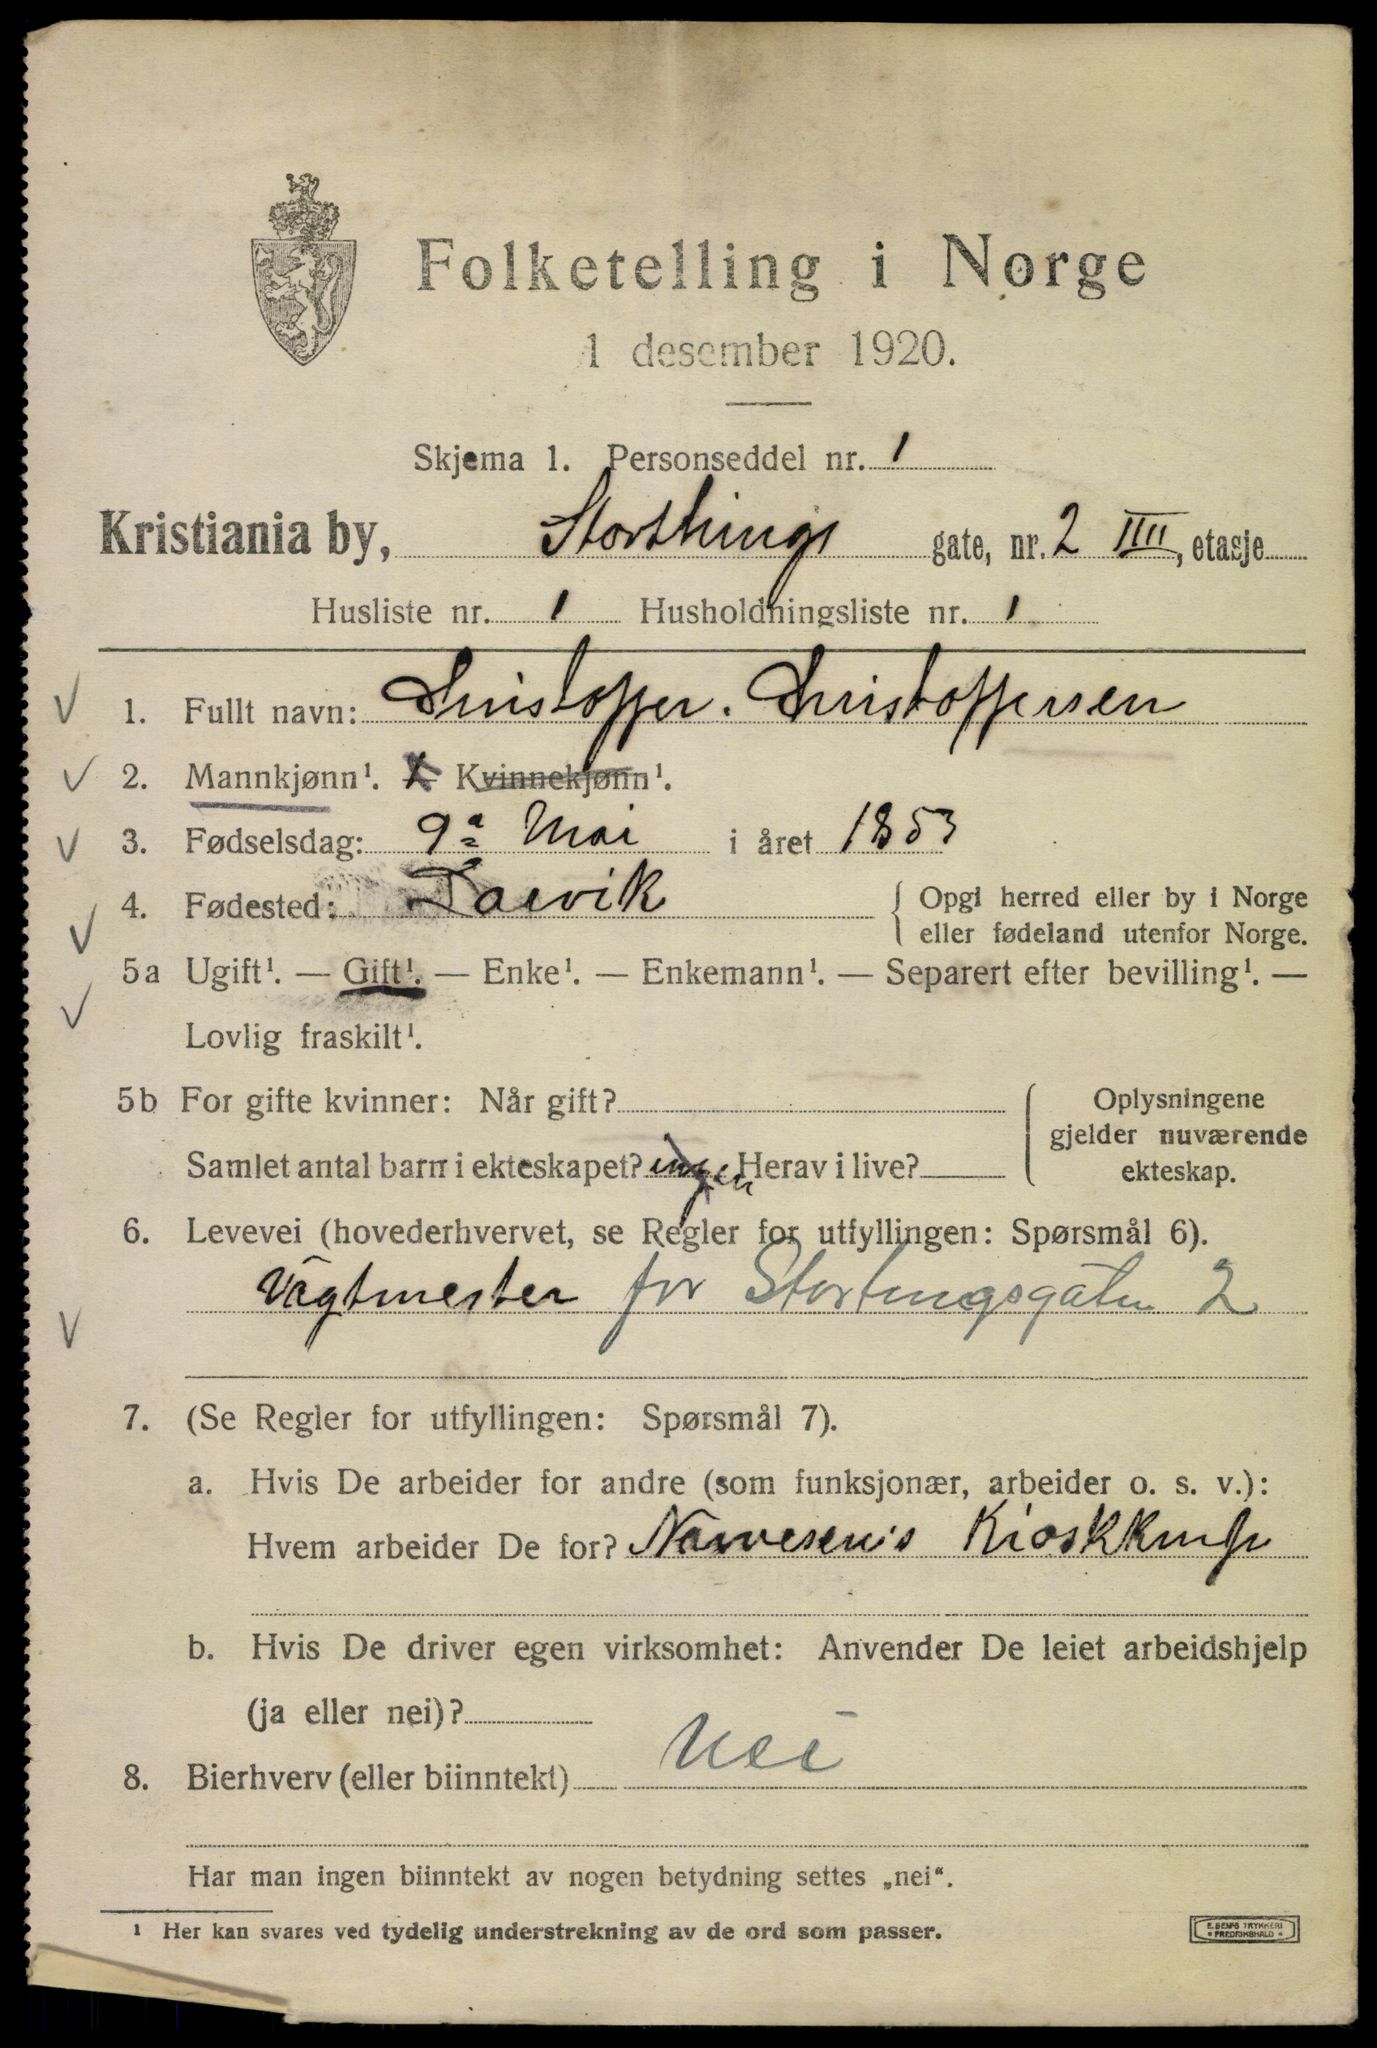 Folketelling i Norge
1 desember 1920.
Skjema 1. Personseddel nr. 1
Kristiania by, Storthings gate, nr. 2 IIII, etasje
Husliste nr. 1 Husholdningsliste nr. 1
1. Fullt navn: Christoffer. Christoffersen
2. Mannkjønn¹. Kvinnekjønn¹.
3. Fødselsdag: 9de Mai i året 1853
4. Fødested: Larvik { Opgi herred eller by i Norge
eller fødeland utenfor Norge.
5a Ugift¹. — Gift¹. — Enke¹. — Enkemann¹. — Separert efter bevilling¹. —
Lovlig fraskilt¹.
5b For gifte kvinner: Når gift? { Oplysningene
gjelder nuværende
Samlet antal barn i ekteskapet? ingen Herav i live? ekteskap.
6. Levevei (hovederhvervet, se Regler for utfyllingen: Spørsmål 6).
Vagtmester for Stortingsgaten 2
7. (Se Regler for utfyllingen: Spørsmål 7).
a. Hvis De arbeider for andre (som funksjonær, arbeider o. s. v.):
Hvem arbeider De for? Narvesen's
b. Hvis De driver egen virksomhet: Anvender De leiet arbeidshjelp
(ja eller nei)?
8. Bierhverv (eller biinntekt) Nei
Har man ingen biinntekt av nogen betydning settes „nei“.
¹ Her kan svares ved tydelig understrekning av de ord som passer.
E. SEMS TRYKKERI
* FREDRIKSHALD *